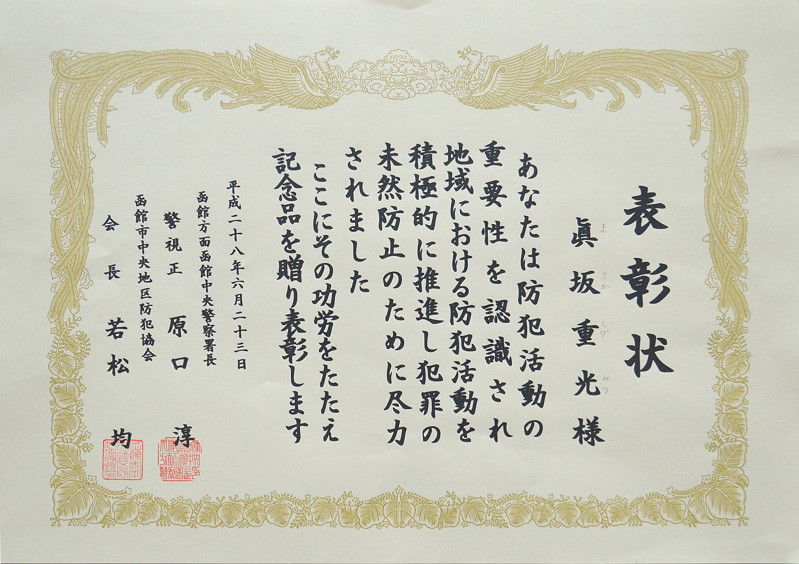 表彰状
眞坂重光様
あなたは防犯活動の
重要性を認識され
地域における防犯活動を
積極的に推進し犯罪の
未然防止のために尽力
されました
ここにその功労をたたえ
記念品を贈り表彰します
平成二十八年六月二十三日
函館方面函館中央警察署長
警視正 原口 淳
函館市中央地区防犯協会
会長 若松 均